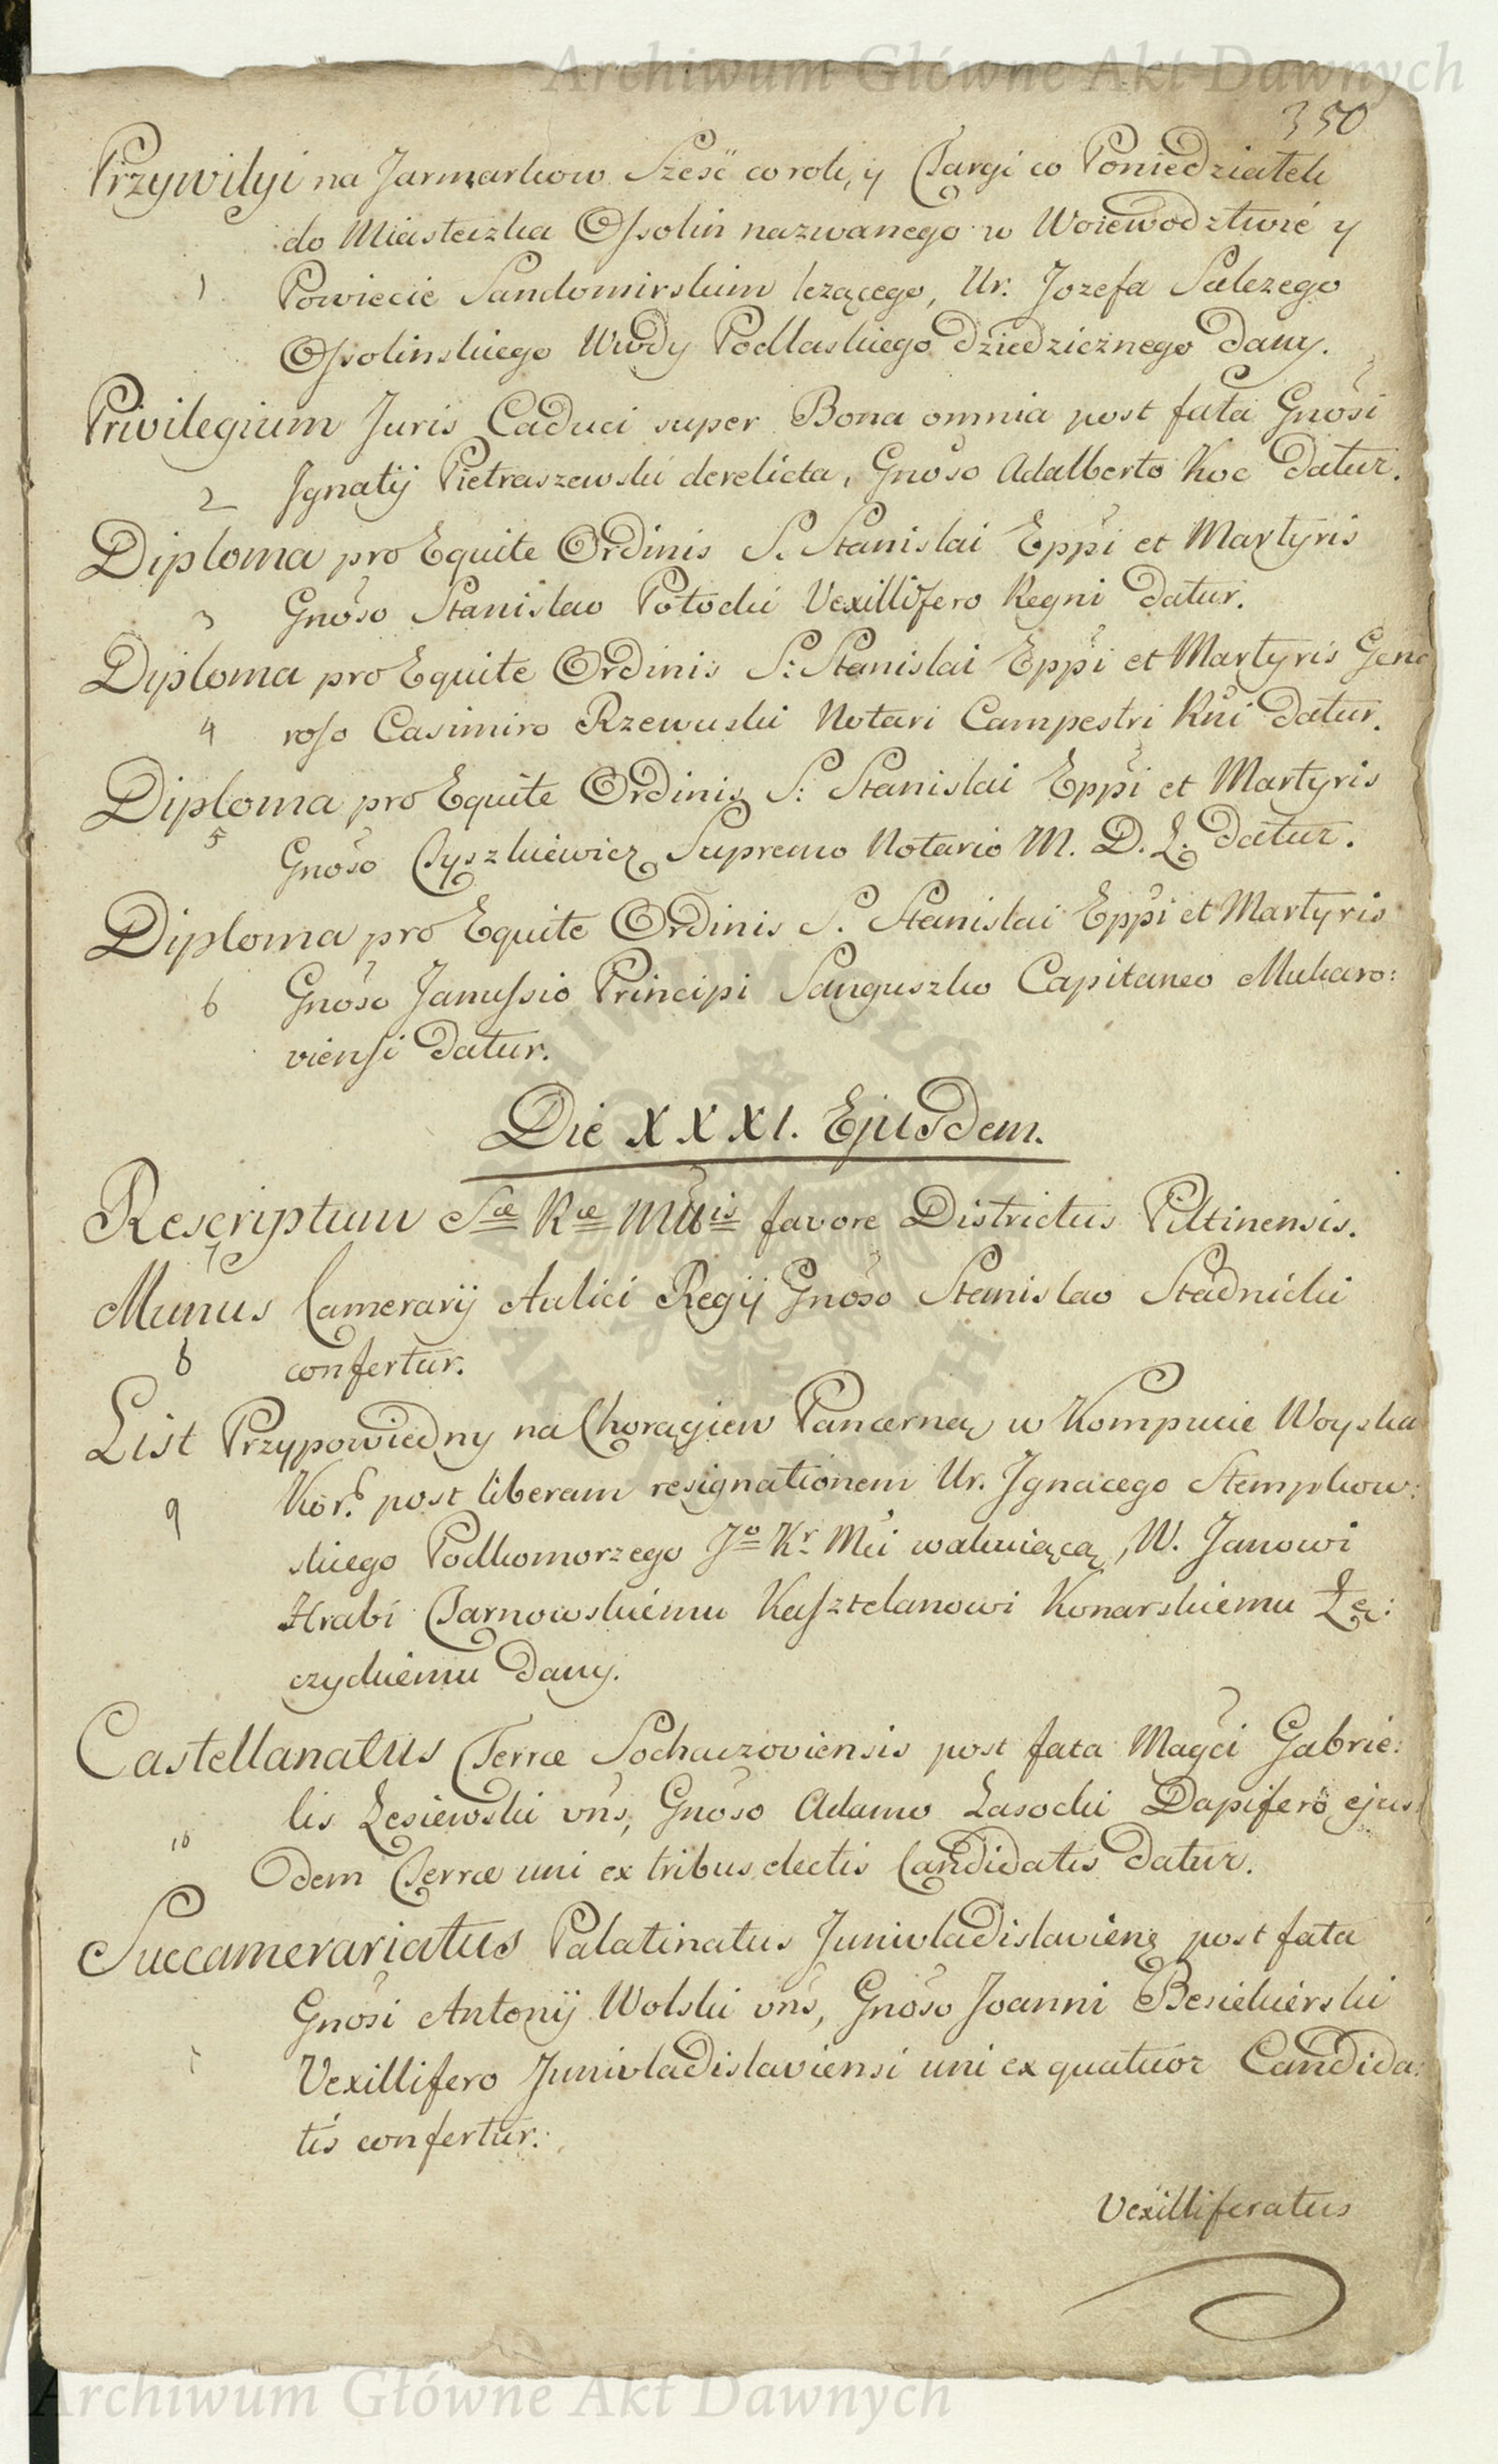 Archiwum Główne Akt Dawnych
350
Przywilyi na Jarmarkow Sześć co rok, y Targi co Poniedziałek
do Miasteczka Ossolin nazwanego w Woiewodztwie y
1 Powiecie Sandomirskim leżącego, Ur. Jozefa Salezego
Ossolinskiego Wwdy Podlaskiego dziedzicznego dany.
Privilegium Juris Caduci super Bona omnia post fata Gnosi
2 Ignatij Pietraszewski derelicta, Gnoso Adalberto Koc datur.
Diploma pro Equite Ordinis S. Stanislai Eppi et Martyris
3 Gnoso Stanislao Potocki Vexillifero Regni datur.
Diploma pro Equite Ordinis S: Stanislai Eppi et Martyris Gene
4 roso Casimiro Rzewuski Notari Campestri Rni datur.
Diploma pro Equite Ordinis S: Stanislai Eppi et Martyris
5 Gnoso Tyszkiewicz Supremo Notario M. D. L. datur.
Diploma pro Equite Ordinis S. Stanislai Eppi et Martyris
6 Gnoso Janussio Principi Sanguszko Capitaneo Mukaro:
viensi datur.
Die XXXI. Ejusdem.
Rescriptum Sæ Ræ Mttis favore Districtus Piltinensis.
7
Munus Camerarij Aulici Regij Gnoso Stanislao Stadnicki
8 confertur.
List Przypowiedny na Chorągiew Pancerną w Kompucie Woyska
9 Kor. post liberam resignationem Ur. Ignacego Stempkow:
skiego Podkomorzego Jo Kr Mci wakuiącą, W. Janowi
Hrabi Tarnowskiemu Kasztelanowi Konarskiemu Łę:
czyckiemu dany.
Castellanatus Terræ Sochaczoviensis post fata Magci Gabrie:
lis Lesiewski vns, Gnoso Adamo Lasocki Dapifero ejus:
10 dem Terræ uni ex tribus electis Candidatis datur.
Succamerariatus Palatinatus Junivladislaviens post fata
Gnosi Antonij Wolski vns, Gnoso Joanni Besiekierski
Vexillifero Junivladislaviensi uni ex quatuor Candida:
tis confertur.
Vexilliferatus
Archiwum Główne Akt Dawnych